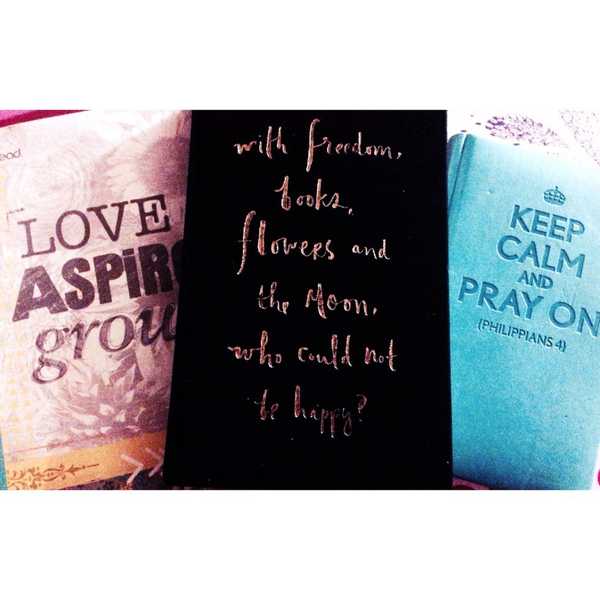 LOVE
ASPiRe
grow
with freedom,
books,
flowers and
the moon,
who could not
be happy?
KEEP
CALM
AND
PRAY ON
{PHILIPPIANS 4}